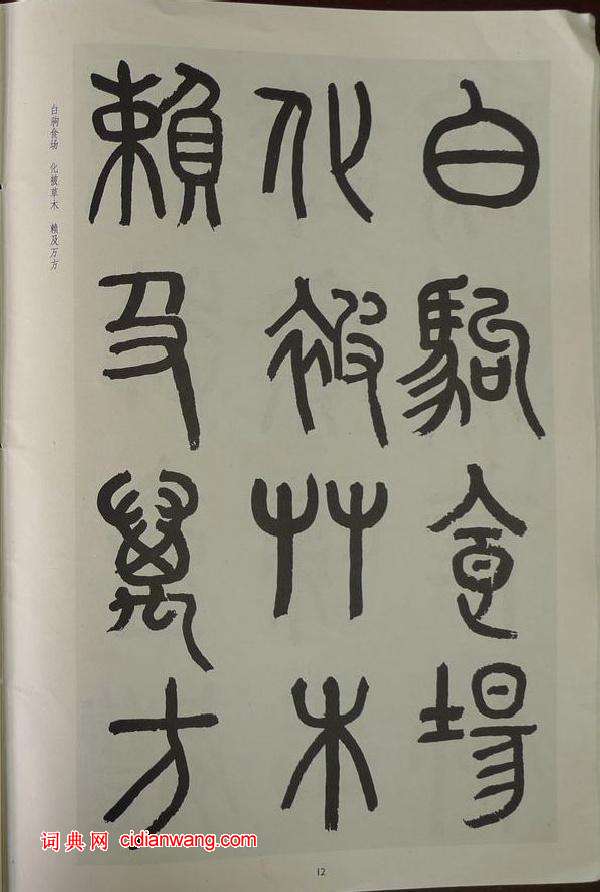 白駒食場
化被艸木
賴及萬方
白驹食场 化被草木 赖及万方
词典网 cidianwang.com
12